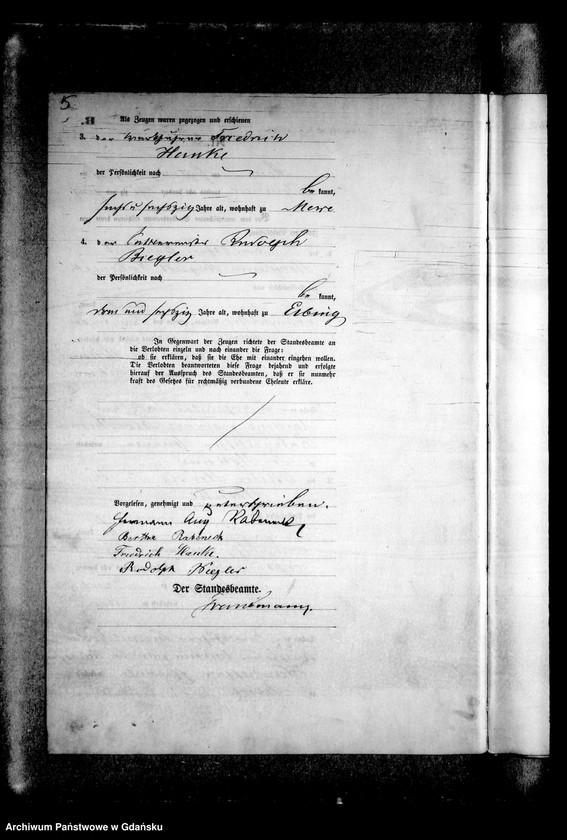 5
B.
Als Zeugen waren zugezogen und erschienen
3. der Friedrich
Hanke
der Persönlichkeit nach
be kannt,
sechs u sechszig Jahre alt, wohnhaft zu Mewe
4. der Sattlermeister Rudolph
Biegler
der Persönlichkeit nach
be kannt,
drei und sechszig Jahre alt, wohnhaft zu Elbing
In Gegenwart der Zeugen richtete der Standesbeamte an
die Verlobten einzeln und nach einander die Frage:
ob sie erklären, daß sie die Ehe mit einander eingehen wollen.
Die Verlobten beantworteten diese Frage bejahend und erfolgte
hierauf der Ausspruch des Standesbeamten, daß er sie nunmehr
kraft des Gesetzes für rechtmäßig verbundene Eheleute erkläre.
Vorgelesen, genehmigt und unterschrieben.
Hermann Aug
Bertha
Friedrich Hanke.
Rudolph Biegler
Der Standesbeamte.
Archiwum Państwowe w Gdańsku